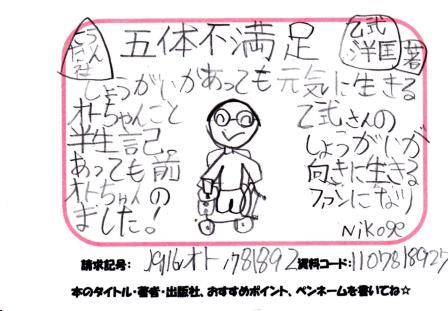 こうだん社
五体不満足
乙武洋国 著
しょうがいがあっても元気に生きる
オトちゃんこと乙武さんの
半生記。しょうがいが
あっても前向きに生きる
オトちゃんのファンになり
ました!
Nikoge
請求記号: J916オト 781892 資料コード:1107818927
本のタイトル・著者・出版社、おすすめポイント、ペンネームを書いてね☆